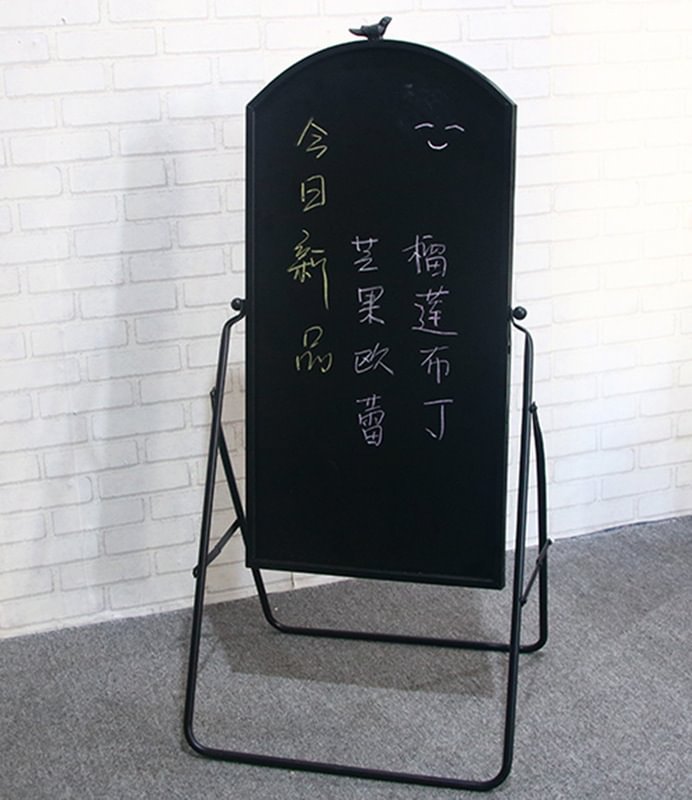 今日新品
芒果欧蕾
榴莲布丁